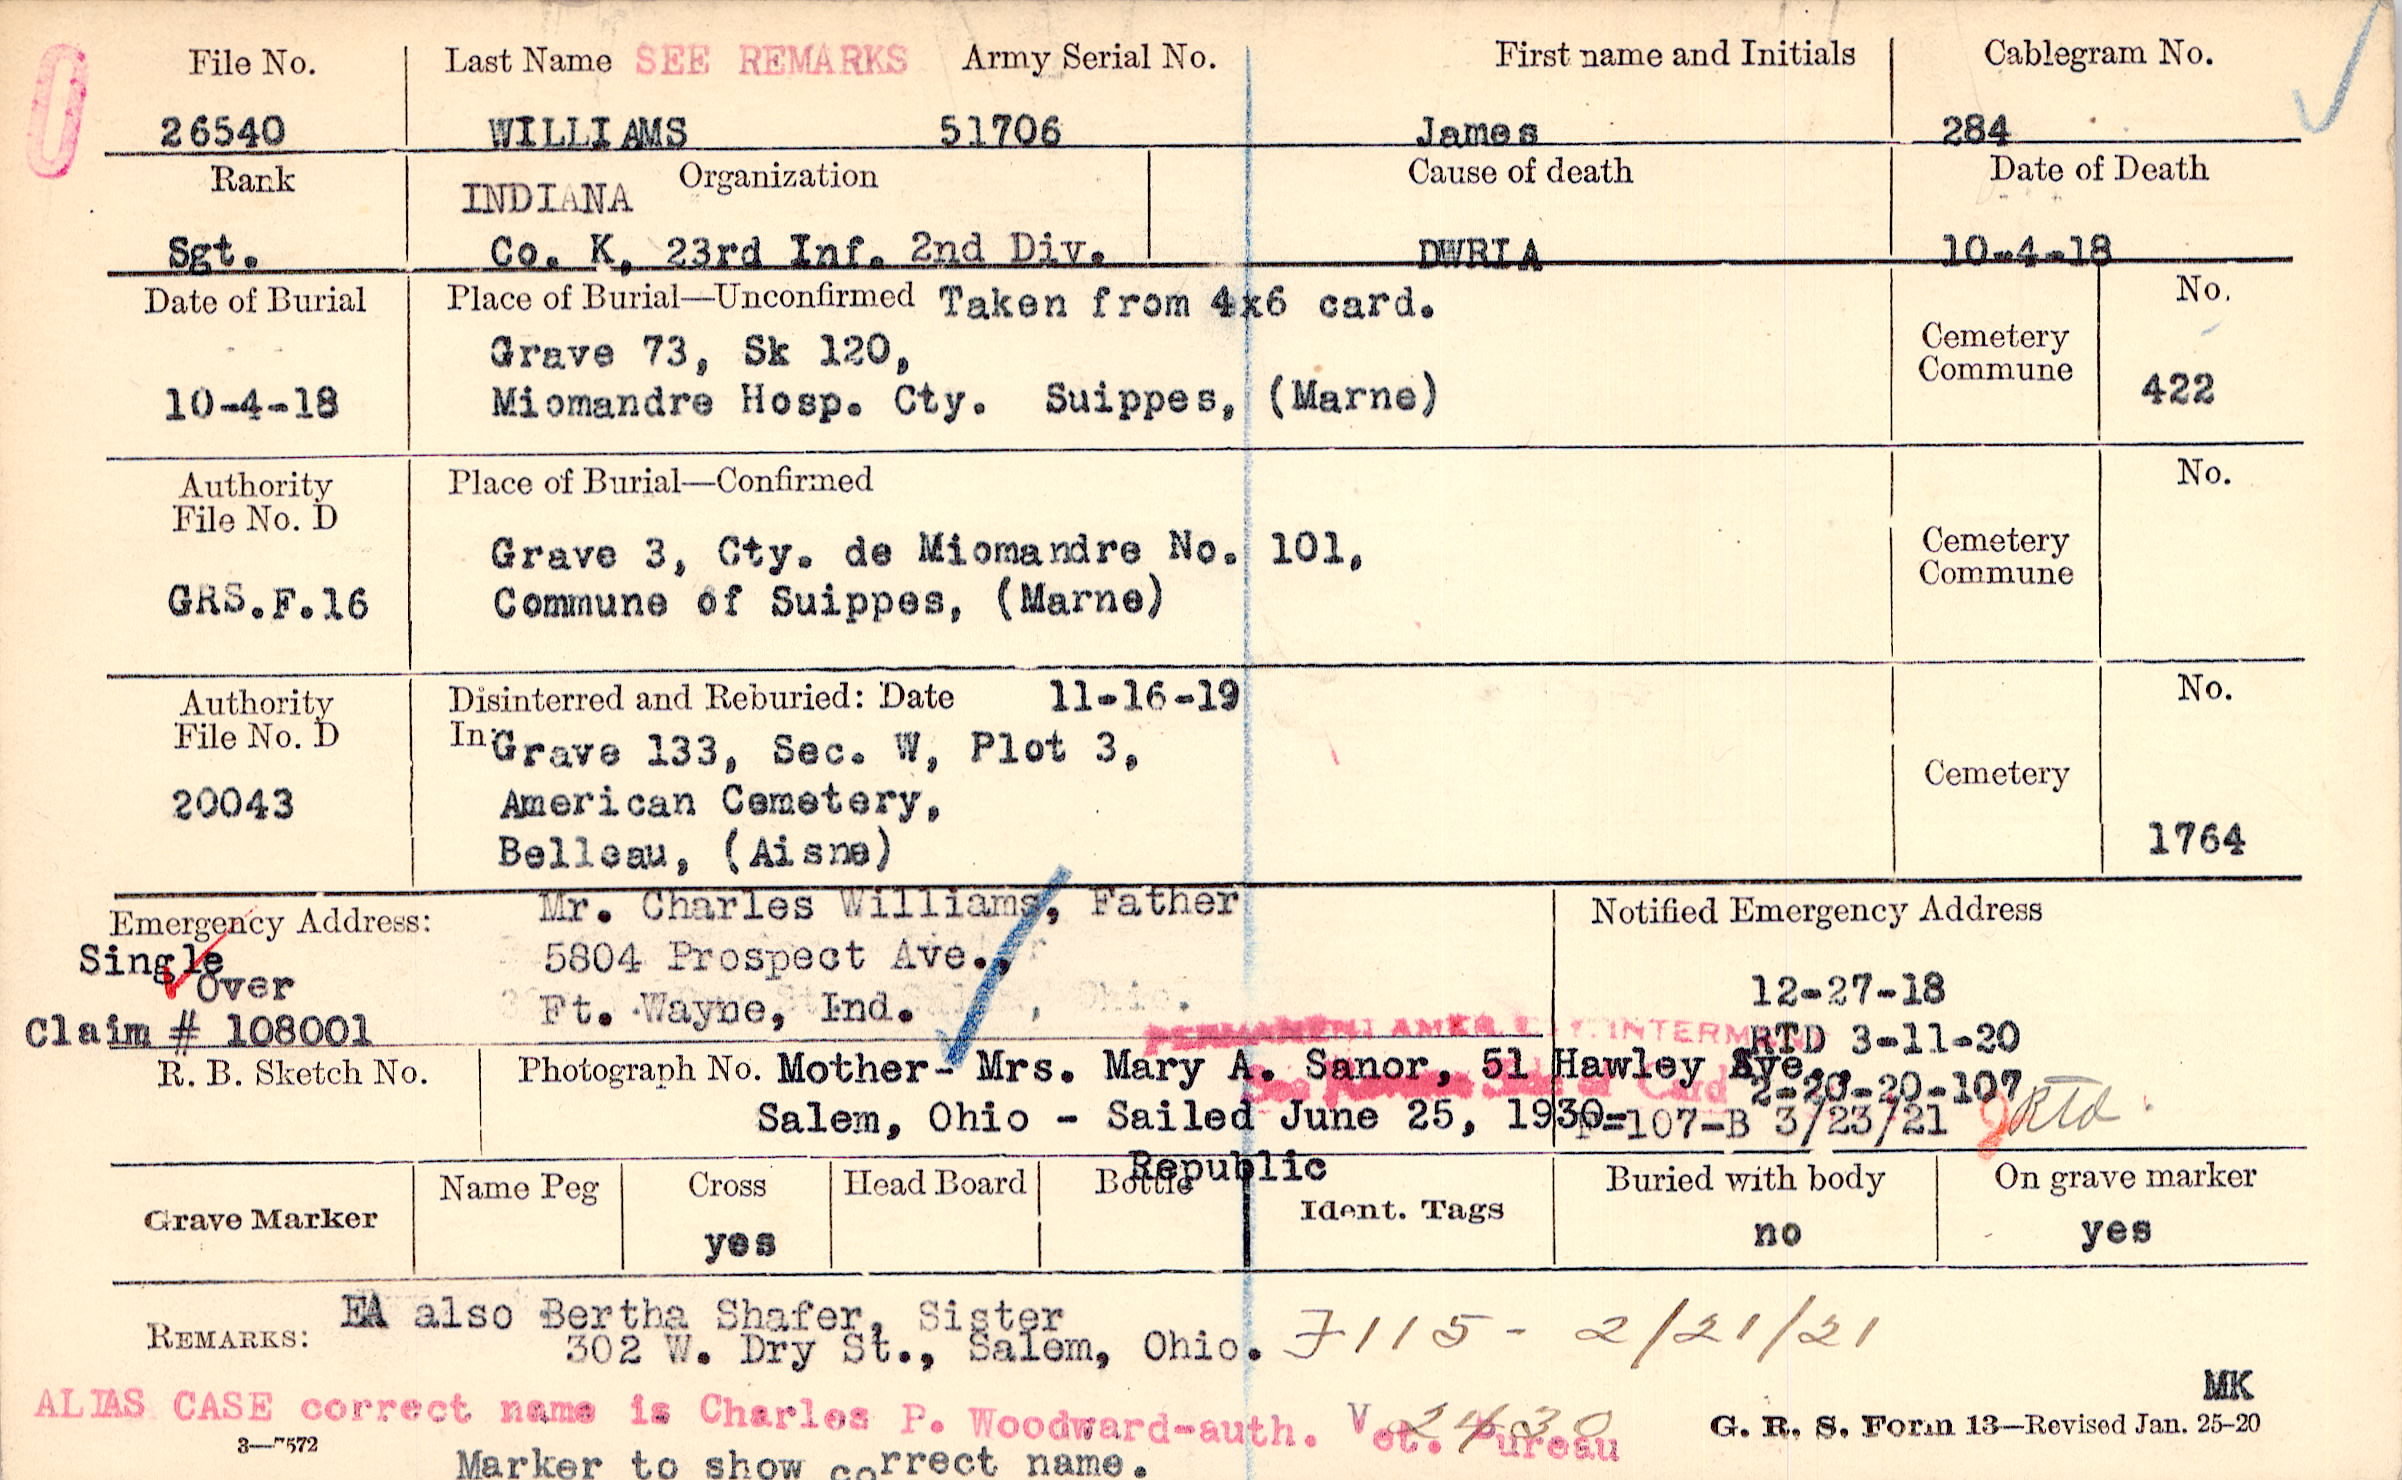 File No. Last Name SEE REMARKS Army Serial No. First name and Initials Cablegram No.
26540 WILLIAMS 51706 James 284
Rank Organization Cause of death Date of Death
INDIANA
Sgt. Co. K, 23rd Inf. 2nd Div. DWRIA 10-4-18
Date of Burial Place of Burial—Unconfirmed Taken from 4x6 card. No.
Grave 73, Sk 120, Cemetery
Commune
10-4-18 Miomandre Hosp. Cty. Suippes, (Marne) 422
Authority Place of Burial—Confirmed No.
File No. D
Grave 3, Cty. de Miomandre No. 101, Cemetery
Commune
GRS.F.16 Commune of Suippes, (Marne)
Authority Disinterred and Reburied: Date 11-16-19 No.
File No. D In Grave 133, Sec. W, Plot 3,
Cemetery
20043 American Cemetery,
Belleau, (Aisne) 1764
Emergency Address: Mr. Charles Williams, Father Notified Emergency Address
Single 5804 Prospect Ave.,
Over 12-27-18
Claim # 108001 Ft. Wayne, Ind. RTD 3-11-20
R. B. Sketch No. Photograph No. Mother- Mrs. Mary A. Sanor, 51 Hawley Ave.,
2-20-20-107
Salem, Ohio - Sailed June 25, 1930- 107-B 3/23/21 Rtd
Republic
Grave Marker Name Peg Cross Head Board Bottle Ident. Tags Buried with body On grave marker
yes no yes
REMARKS: EA also Bertha Shafer, Sister
302 W. Dry St., Salem, Ohio. F115- 2/21/21
MK
ALIAS CASE correct name is Charles P. Woodward-auth. Vet. Bureau 2430
3—7572 G. R. S. Form 13—Revised Jan. 25-20
Marker to show correct name.